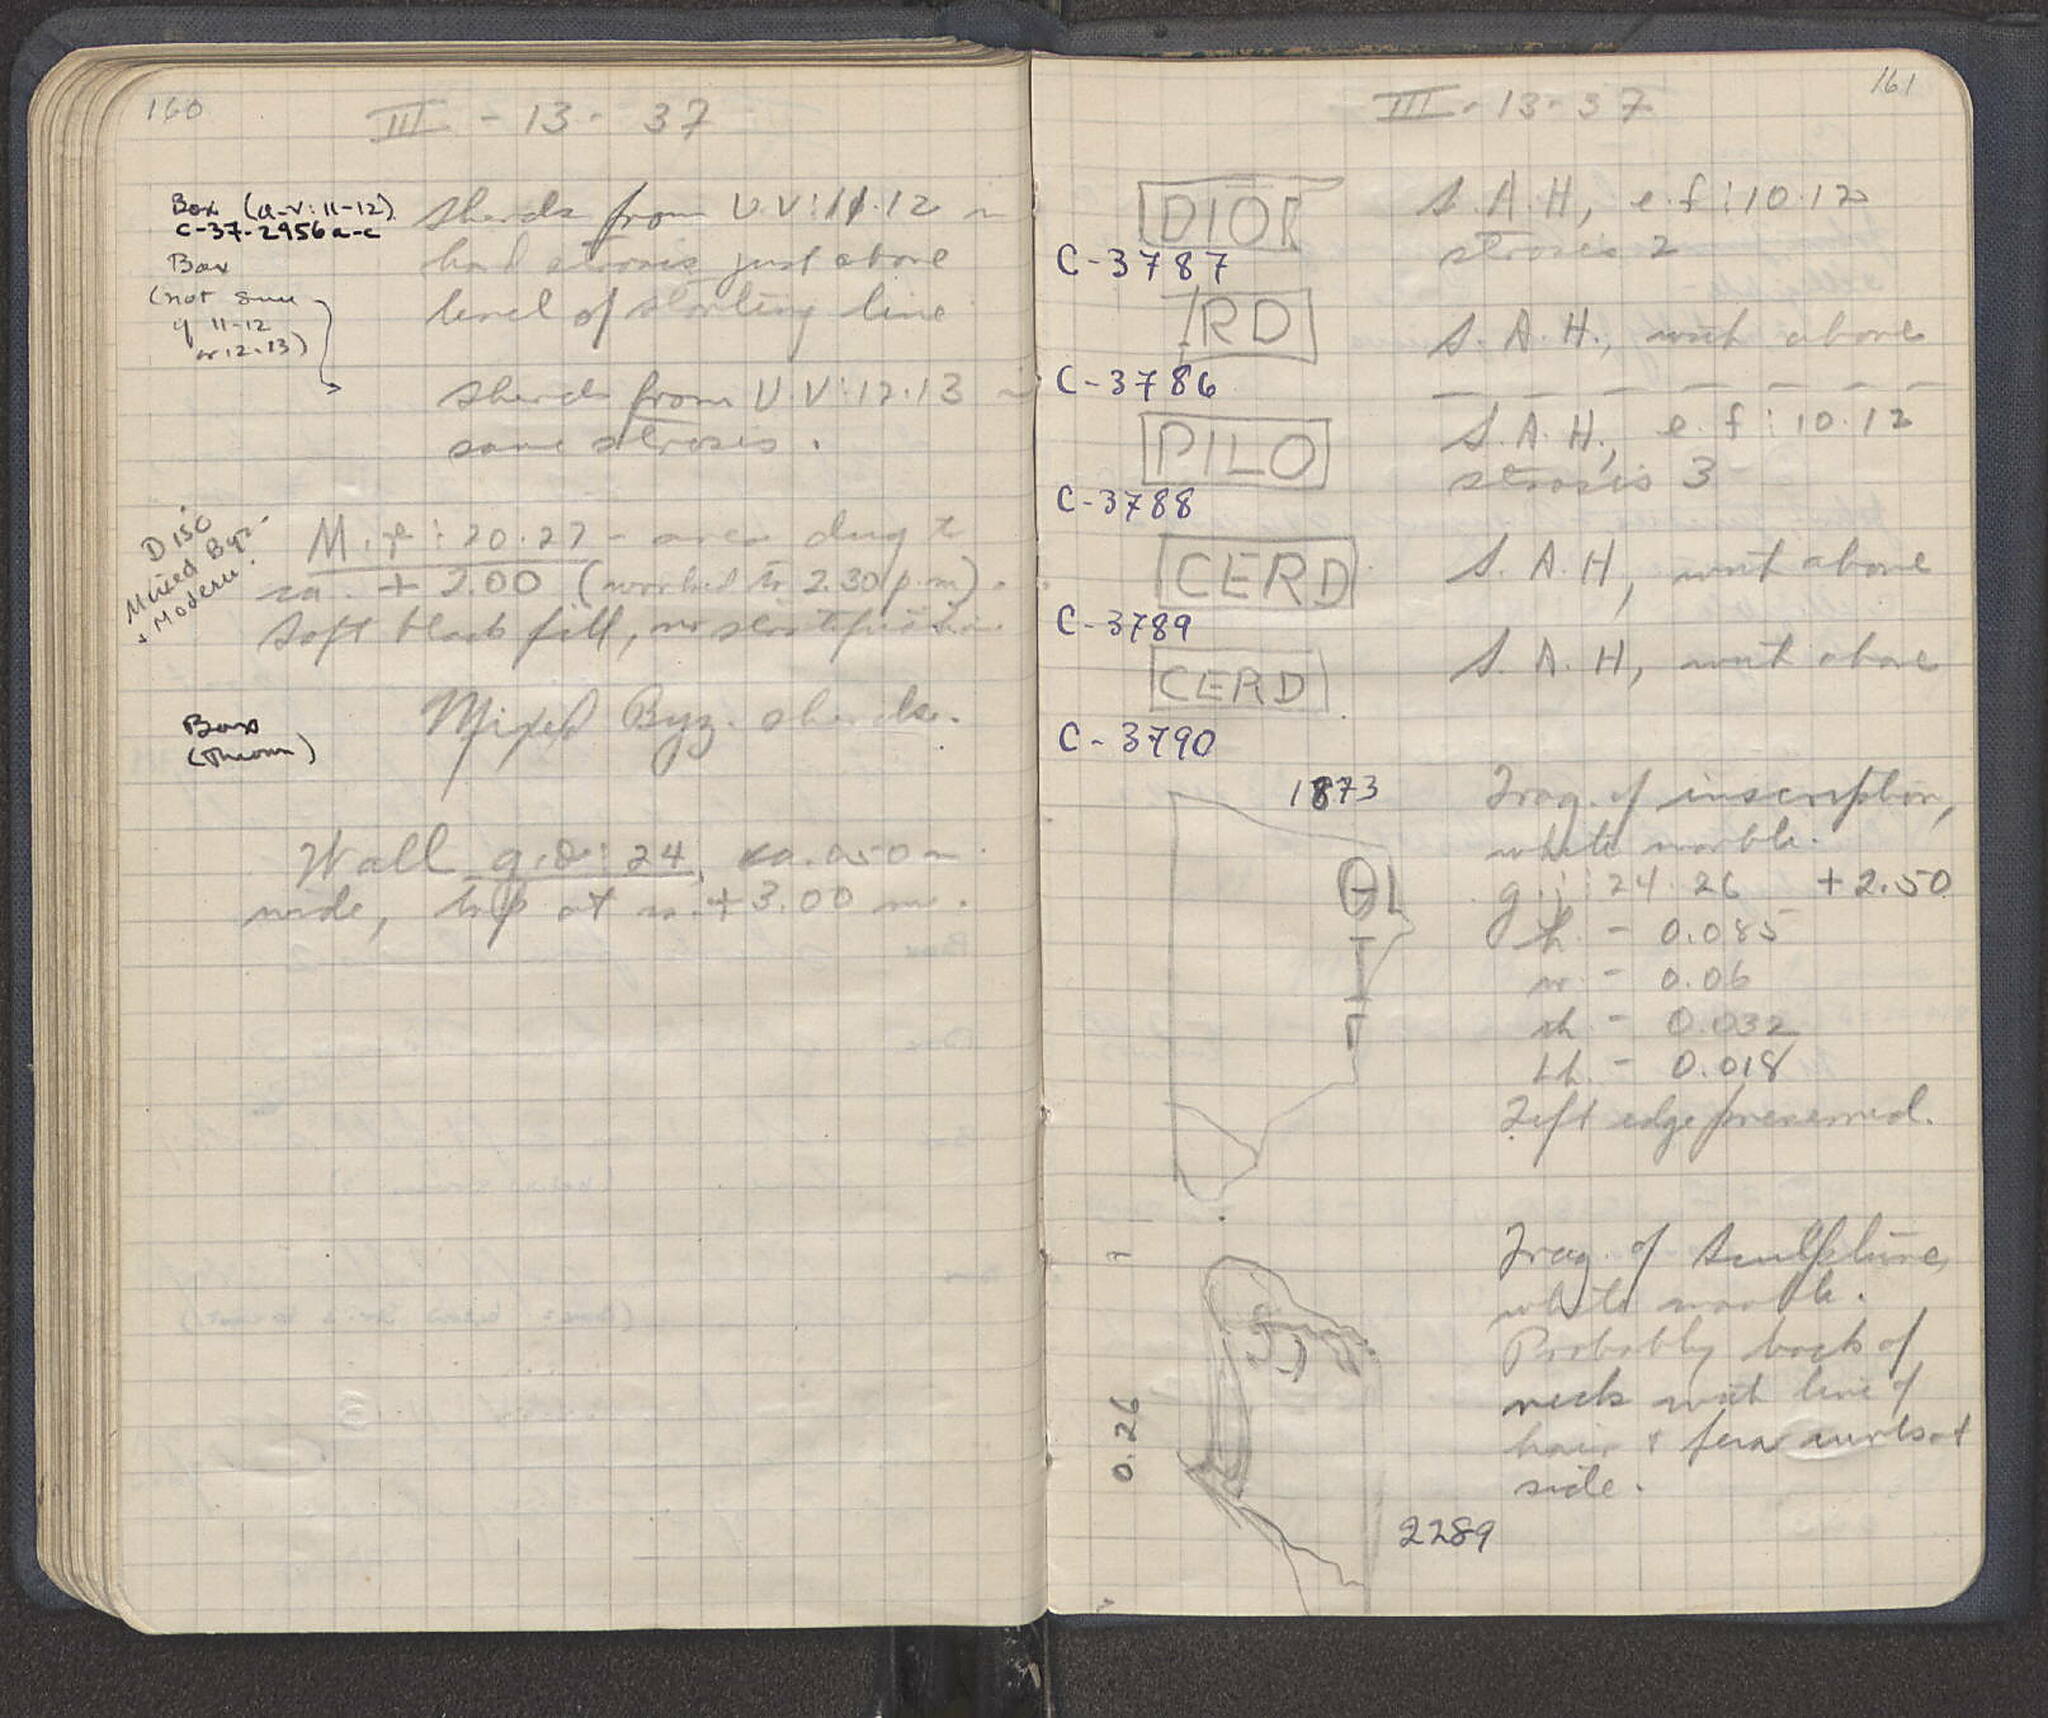 160
III - 13 - 37
Box (u-v: 11-12)
C-37-2956a-c
Sherds from U.V:11.12 in
hard strosis just above
level of starting line
Box
(not sure
if 11-12
or 12.13)
Sherds from U.V:12.13 in
same strosis.
D 150
Mixed Byz-
+ Modern.
: 20.27 - area dug to
ca. + 2.00 (worked to 2.30 p.m).
Soft black fill, no stratification.
Box
(thrown)
Mixed Byz. sherds.
Wall : 24, ca. 0.50 m.
wide, top at ca. +3.00 m.
161
III - 13 - 37
DIOE
S.A.H, e.f:10.12
strosis 2
C-3787
RD
S.A.H., with above
C-3786
PILO
S.A.H., e.f:10.12
strosis 3
C-3788
CERD
S.A.H, with above
C-3789
CERD
S.A.H, with above
C-3790
1873
Frag. of inscription,
white marble.
g.j:24.26 +2.50
h. - 0.085
w. - 0.06
th. - 0.032
l.h. - 0.018
Left edge preserved.
Θ
Ι
Frag. of Sculpture,
white marble.
Probably back of
neck with line of
hair & few curls at
side.
0.26
2289